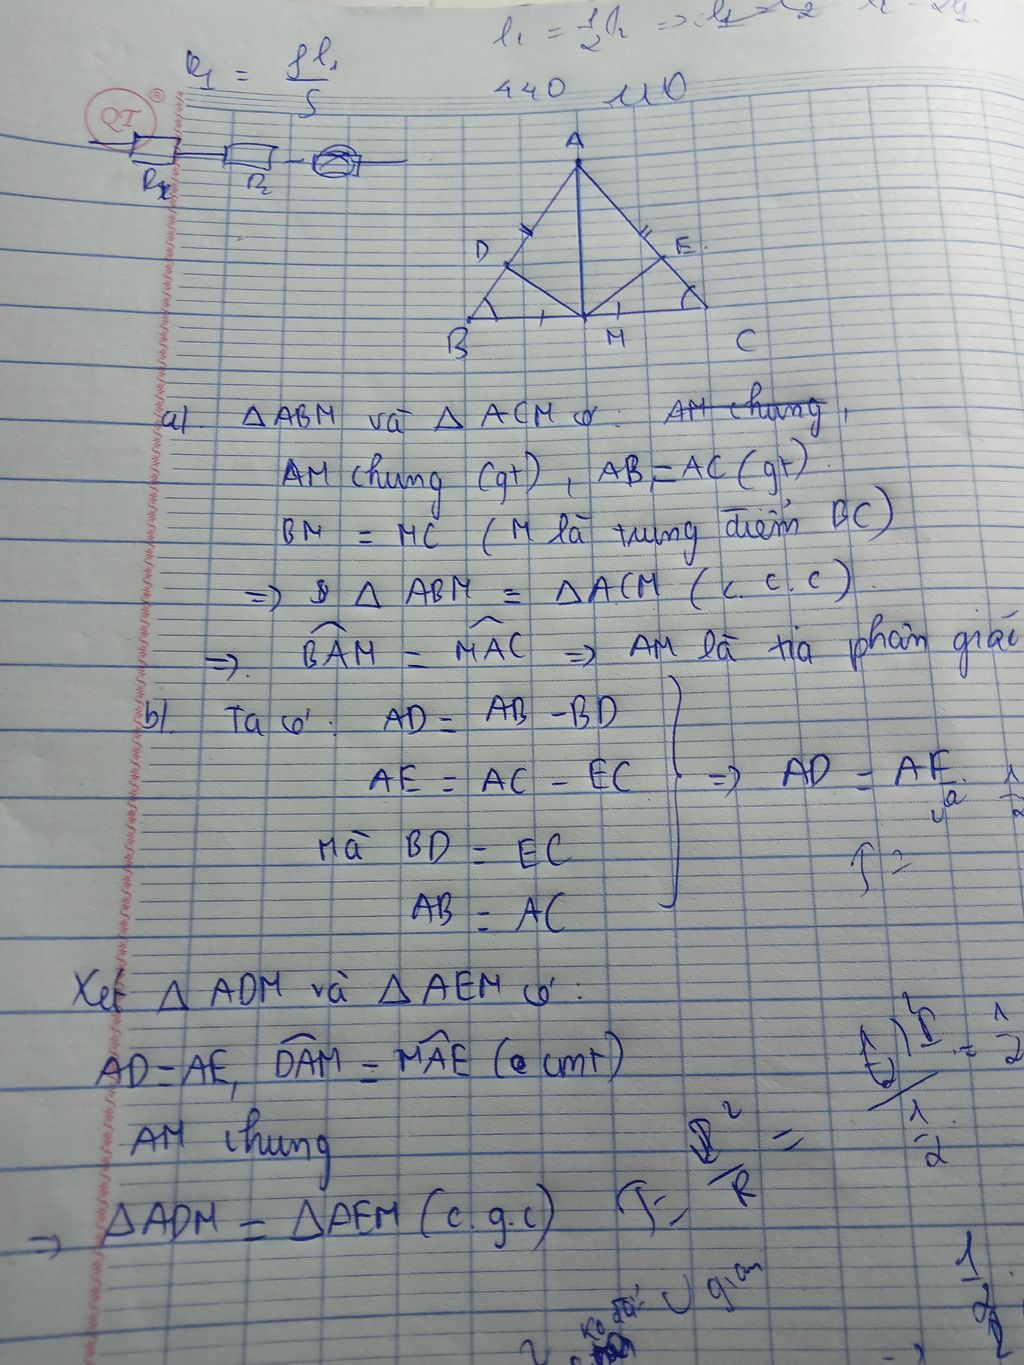 l₁ = 1/2 l₂ =>
R₁ = ρl₁/S
440 110
QT
®
A
Rx R₂
D E
B M C
a) Δ ABM và Δ ACM có: AM chung,
AM chung (gt), AB = AC (gt)
BM = MC (M là trung điểm BC)
=> Δ ABM = Δ ACM (c.c.c).
=> BAM = MAC => AM là tia phân giác
b) Ta có: AD = AB - BD
AE = AC - EC => AD = AE
Mà BD = EC
AB = AC
Xét Δ ADM và Δ AEM có:
AD = AE, DAM = MAE (cmt)
AM chung
=> ΔADM = ΔAEM (c.g.c)